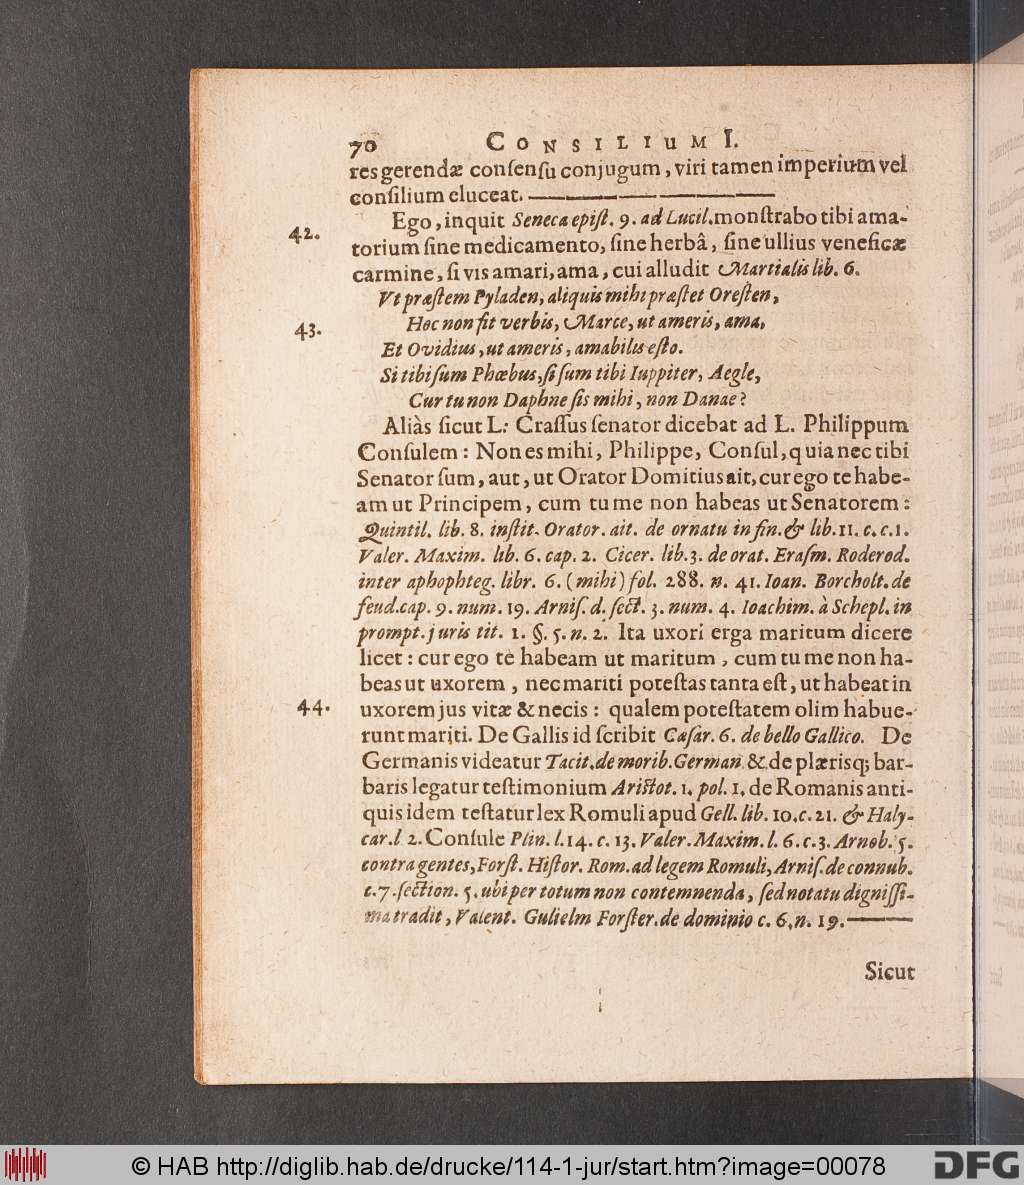 70 CONSILIUM I.
res gerendæ consensu conjugum, viri tamen imperium vel
consilium eluceat.
42. Ego, inquit Seneca epist. 9. ad Lucil. monstrabo tibi ama-
torium sine medicamento, sine herbâ, sine ullius veneficæ
carmine, si vis amari, ama, cui alludit Martialis lib. 6.
Vt præstem Pyladen, aliquis mihi præstet Oresten,
43. Hoc non fit verbis, Marce, ut ameris, ama,
Et Ovidius, ut ameris, amabilis esto.
Si tibi sum Phœbus, si sum tibi Iuppiter, Aegle,
Cur tu non Daphne sis mihi, non Danae?
Aliàs sicut L: Crassus senator dicebat ad L. Philippum
Consulem: Non es mihi, Philippe, Consul, quia nec tibi
Senator sum, aut, ut Orator Domitius ait, cur ego te habe-
am ut Principem, cum tu me non habeas ut Senatorem:
Quintil. lib. 8. instit. Orator. ait. de ornatu in fin. & lib. 11. c. c. 1.
Valer. Maxim. lib. 6. cap. 2. Cicer. lib. 3. de orat. Erasm. Roderod.
inter aphophteg. libr. 6. (mihi) fol. 288. n. 41. Ioan. Borcholt. de
feud. cap. 9. num. 19. Arnis. d. sect. 3. num. 4. Ioachim. à Schepl. in
prompt. juris tit. 1. §. 5. n. 2. Ita uxori erga maritum dicere
licet: cur ego te habeam ut maritum, cum tu me non ha-
beas ut uxorem, nec mariti potestas tanta est, ut habeat in
44. uxorem jus vitæ & necis: qualem potestatem olim habue-
runt mariti. De Gallis id scribit Cæsar. 6. de bello Gallico. De
Germanis videatur Tacit. de morib. German & de plærisq; bar-
baris legatur testimonium Aristot. 1. pol. 1. de Romanis anti-
quis idem testatur lex Romuli apud Gell. lib. 10. c. 21. & Haly-
car. l 2. Consule Plin. l. 14. c. 13. Valer. Maxim. l. 6. c. 3. Arnob. 5.
contra gentes, Forst. Histor. Rom. ad legem Romuli, Arnis. de connub.
c. 7. section. 5. ubi per totum non contemnenda, sed notatu dignissi-
ma tradit, Valent. Gulielm Forster. de dominio c. 6. n. 19.
Sicut
© HAB http://diglib.hab.de/drucke/114-1-jur/start.htm?image=00078
DFG